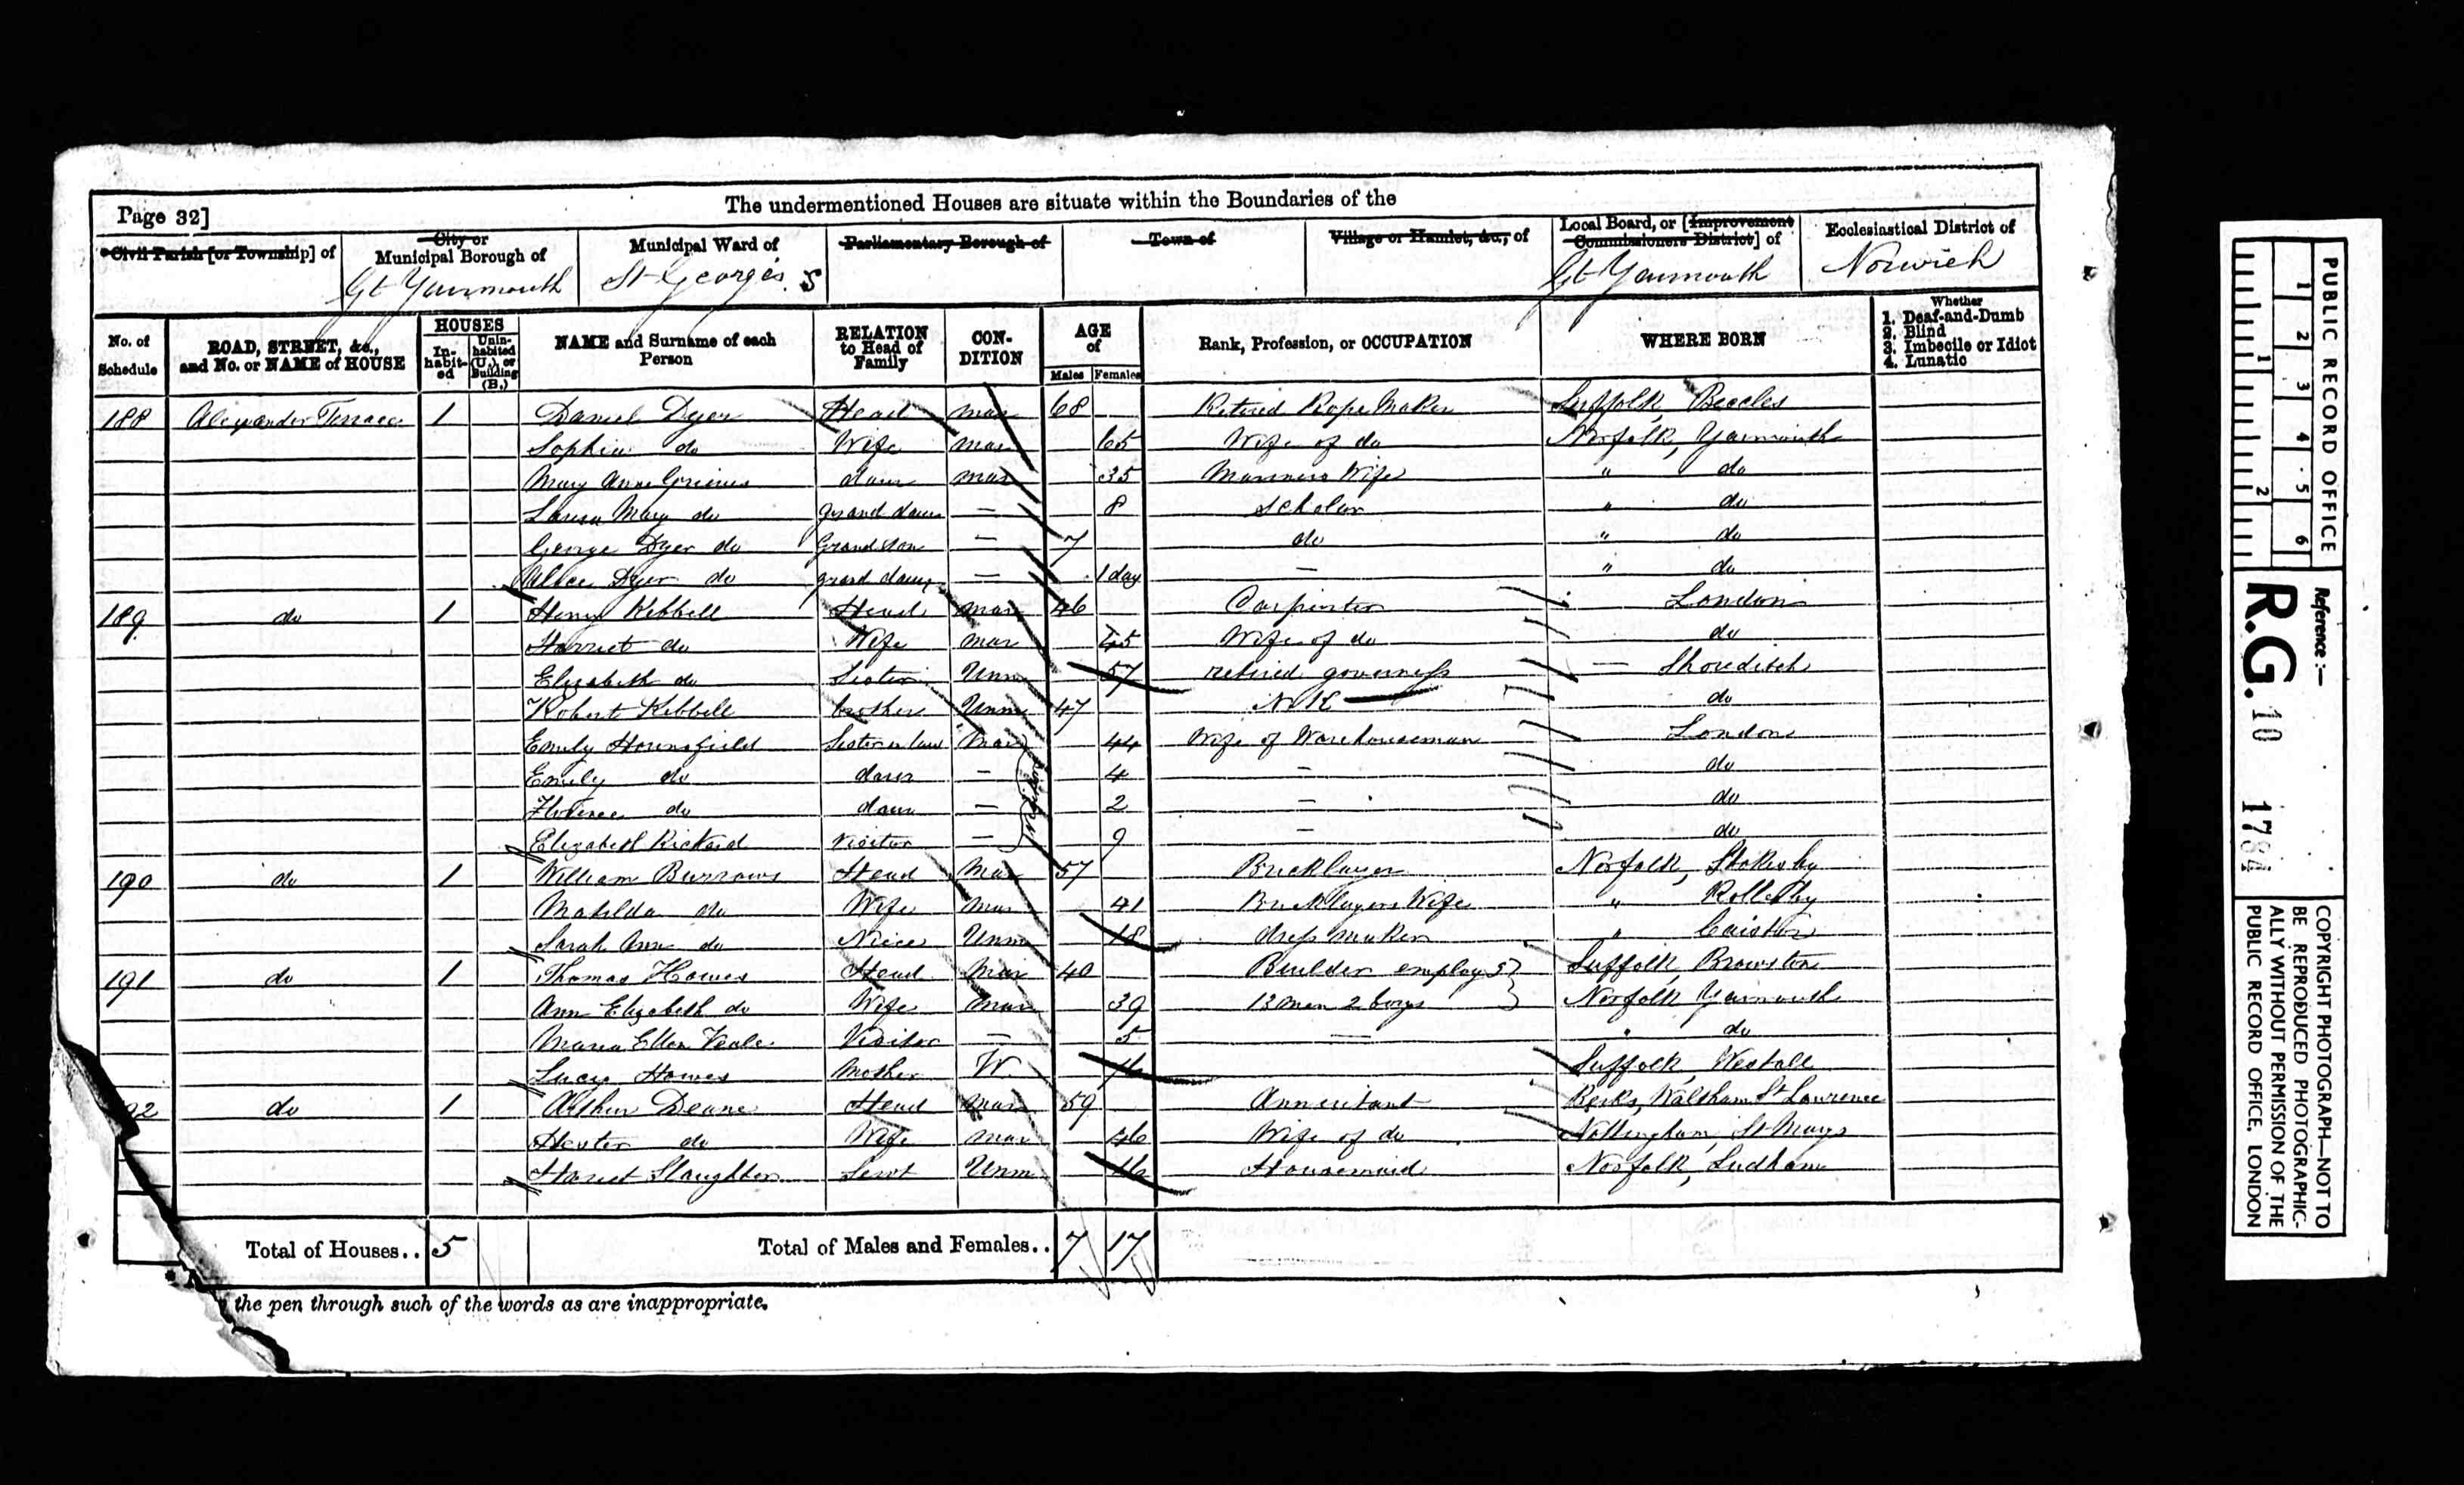 The undermentioned Houses are situate within the Boundaries of the
Page 32]
Civil Parish [or Township] of
City or Municipal Borough of
Gt Yarmouth
Municipal Ward of
St Georges. S
Parliamentary Borough of
Town of
Village or Hamlet, &c., of
Local Board, or [Improvement Commissioners District] of
Gt Yarmouth
Ecclesiastical District of
Norwich
No. of Schedule
ROAD, STREET, &c., and No. or NAME of HOUSE
HOUSES
In-habit-ed
Unin-habited (U.), or Building (B.)
NAME and Surname of each Person
RELATION to Head of Family
CON-DITION
AGE of
Males
Females
Rank, Profession, or OCCUPATION
WHERE BORN
Whether
1. Deaf-and-Dumb
2. Blind
3. Imbecile or Idiot
4. Lunatic
188 Alexander Terrace 1 Daniel Dyer Head mar 68 Retired Rope Maker Suffolk, Beccles
Sophia do Wife mar 65 Wife of do Norfolk, Yarmouth
Mary Anne daur mar 35 Mariners Wife " do
Laura Mary do grand daur — 8 Scholar " do
George Dyer do Grandson — 7 do " do
Alice Dyer do grand daur — 1 day — " do
189 do 1 Henry Kibbell Head mar 46 Carpenter London
Harriet do Wife mar 45 Wife of do do
Elizabeth do Sister Unm 57 retired governess — Shoreditch
Robert Kibbell brother Unm 47 N K — do
Emily Hounsfield Sister in law mar 44 Wife of Warehouseman London
Emily do daur — 4 — do
Florence do daur — 2 — do
Elizabeth Rickard visitor — 9 — do
visitors
190 do 1 William Burrows Head Mar 57 Bricklayer Norfolk, Stokesby
Matilda do Wife mar 41 Bricklayers Wife " Rollesby
Sarah Ann do Niece Unm 18 dress maker " Caistor
191 do 1 Thomas Howes Head Mar 40 Builder employs} Suffolk, Browston
Ann Elizabeth do Wife mar 39 13 men 2 boys} Norfolk Yarmouth
Maria Ellen Visitor — 5 — " do
Lucy Howes Mother W Suffolk,
92 do 1 Arthur Deane Head mar 59 Annuitant Berks, Waltham St Lawrence
Hester do Wife mar 46 Wife of do Nottingham, St Marys
Harriet Slaughter Servt Unm 16 Housemaid Norfolk, Ludham
Total of Houses.. 5
Total of Males and Females.. 7 17
the pen through such of the words as are inappropriate.
PUBLIC RECORD OFFICE
1 2 3 4 5 6
1 2
Reference:—
R.G. 10 1784
COPYRIGHT PHOTOGRAPH—NOT TO
BE REPRODUCED PHOTOGRAPHIC-
ALLY WITHOUT PERMISSION OF THE
PUBLIC RECORD OFFICE, LONDON